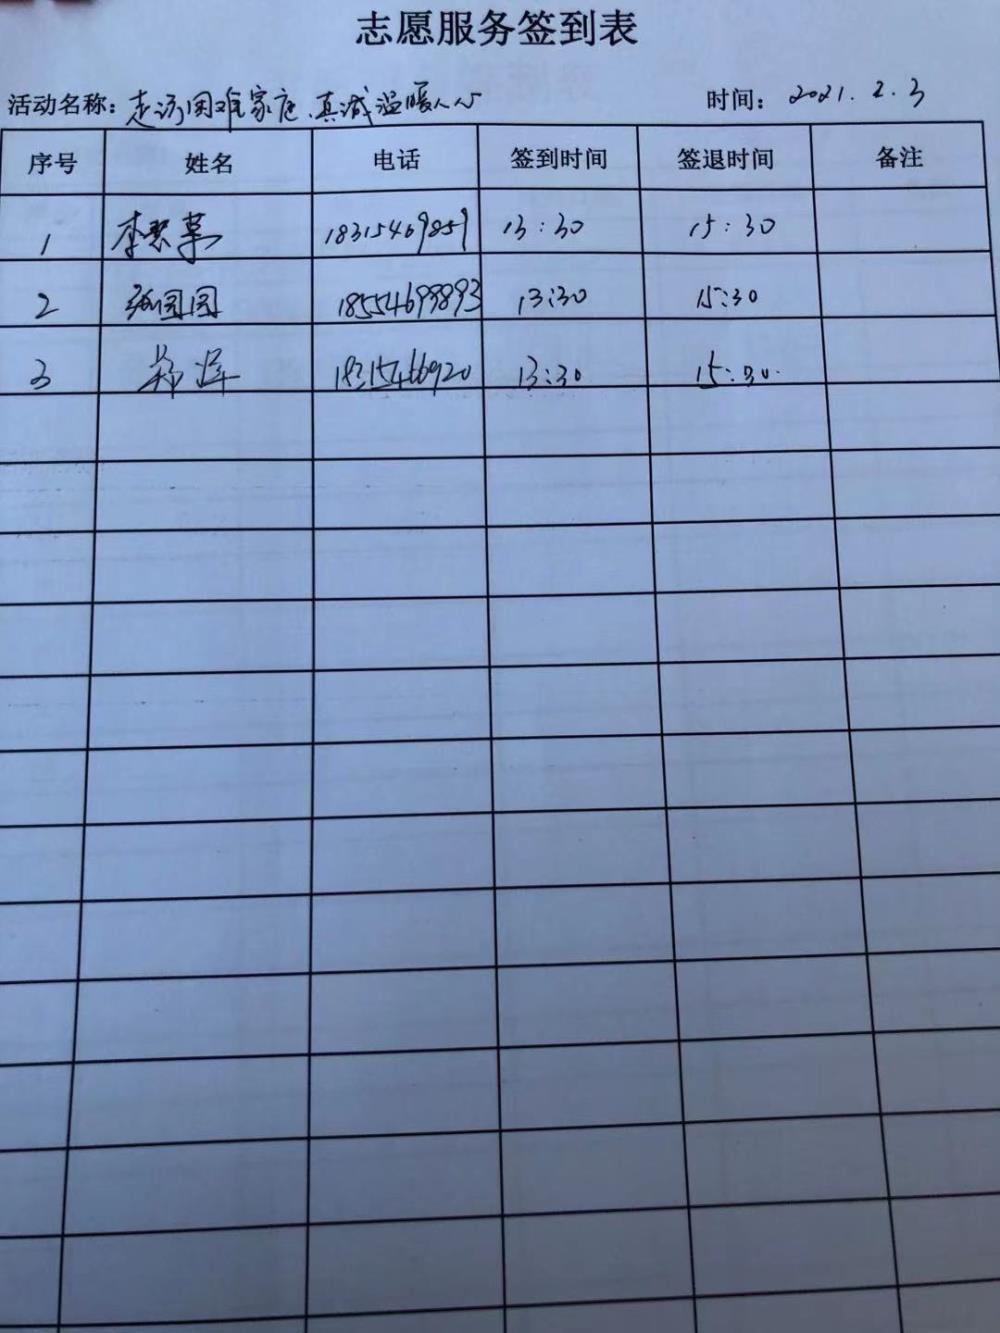 志愿服务签到表
活动名称：走访困难家庭、真诚温暖人心 时间：2021.2.3
序号 姓名 电话 签到时间 签退时间 备注
1 李 18315469859 13:30 15:30
2 张园园 18554693893 13:30 15:30
3 郑 18315466920 13:30 15:30